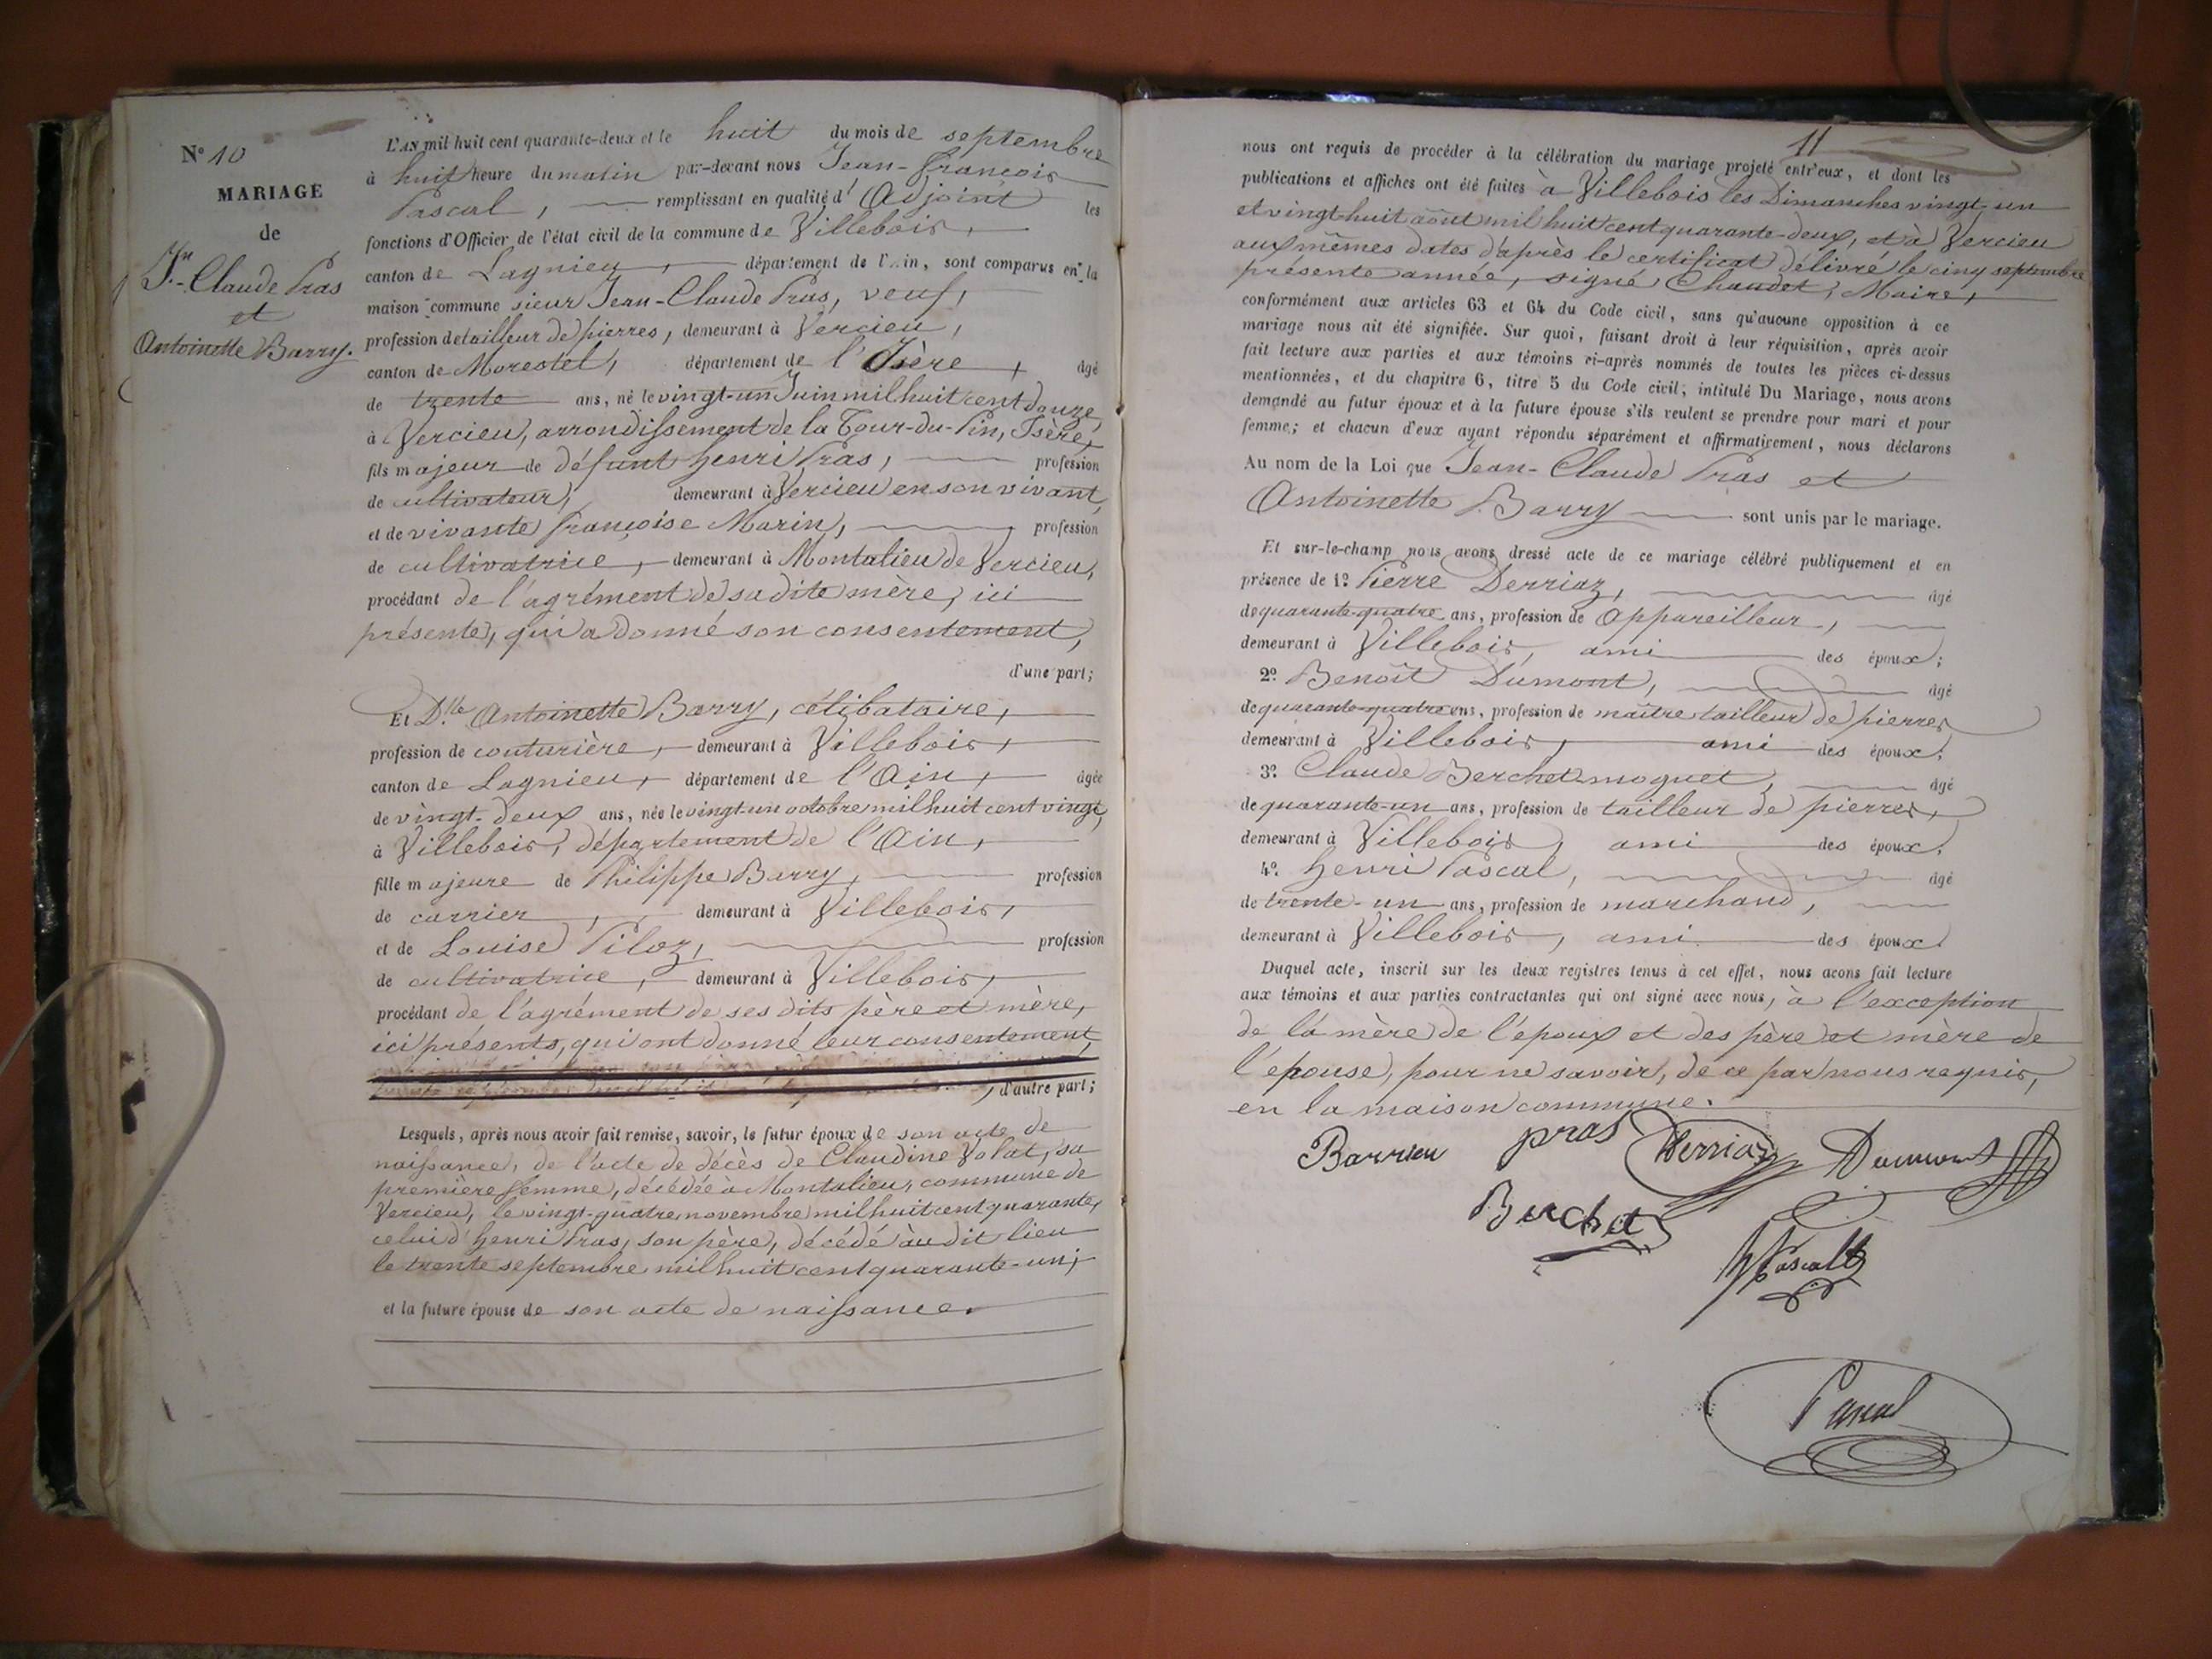 N° 10
MARIAGE
de
Jn.-Claude Pras
et
Antoinette Barry.
L'AN mil huit cent quarante-deux et le huit du mois de septembre
à huit heure du matin par-devant nous Jean-François
Pascal, remplissant en qualité d'Adjoint les
fonctions d'Officier de l'état civil de la commune de Villebois,
canton de Lagnieu, département de l'Ain, sont comparus en la
maison commune sieur Jean-Claude Pras, veuf,
profession de tailleur de pierres, demeurant à Vercieu,
canton de Morestel, département de l'Isère, âgé
de trente ans, né le vingt-un Juin mil huit cent douze,
à Vercieu, arrondissement de la Tour-du-Pin, Isère,
fils majeur de défunt henri Pras, profession
de cultivateur, demeurant à Vercieu en son vivant,
et de vivante françoise Marin, profession
de cultivatrice, demeurant à Montalieu de Vercieu,
procédant de l'agrément de sa dite mère, ici
présente, qui a donné son consentement,
d'une part;
Et Dlle Antoinette Barry, célibataire,
profession de couturière, demeurant à Villebois,
canton de Lagnieu, département de l'Ain, âgée
de vingt-deux ans, née le vingt-un octobre mil huit cent vingt,
à Villebois, département de l'Ain,
fille majeure de Philippe Barry, profession
de carrier, demeurant à Villebois,
et de Louise Piloz, profession
de cultivatrice, demeurant à Villebois,
procédant de l'agrément de ses dits père et mère,
ici présents, qui ont donné leur consentement
, d'autre part;
Lesquels, après nous avoir fait remise, savoir, le futur époux de son acte de
naissance, de l'acte de décès de Claudine Volat, sa
première femme, décédée à Montalieu, commune de
Vercieu, le vingt-quatre novembre mil huit cent quarante,
celui d'henri Pras, son père, décédé au dit lieu
le trente septembre mil huit cent quarante-un;
et la future épouse de son acte de naissance.
11
nous ont requis de procéder à la célébration du mariage projeté entr'eux, et dont les
publications et affiches ont été faites à Villebois les Dimanches vingt-un
et vingt-huit août mil huit cent quarante-deux, et à Vercieu
aux mêmes dates d'après le certificat délivré le cinq septembre
présente année, signé, Chaudet, Maire,
conformément aux articles 63 et 64 du Code civil, sans qu'aucune opposition à ce
mariage nous ait été signifiée. Sur quoi, faisant droit à leur réquisition, après avoir
fait lecture aux parties et aux témoins ci-après nommés de toutes les pièces ci-dessus
mentionnées, et du chapitre 6, titre 5 du Code civil, intitulé Du Mariage, nous avons
demandé au futur époux et à la future épouse s'ils veulent se prendre pour mari et pour
femme; et chacun d'eux ayant répondu séparément et affirmativement, nous déclarons
Au nom de la Loi que Jean-Claude Pras et
Antoinette Barry sont unis par le mariage.
Et sur-le-champ nous avons dressé acte de ce mariage célébré publiquement et en
présence de 1º Pierre Derriaz, âgé
de quarante-quatre ans, profession de Appareilleur,
demeurant à Villebois, ami des époux;
2º Benoît Dumont, âgé
de quarante-quatre ans, profession de maître tailleur de pierres,
demeurant à Villebois, ami des époux.
3º Claude Berchet-moguet, âgé
de quarante-un ans, profession de tailleur de pierres,
demeurant à Villebois, ami des époux.
4º henri Pascal, âgé
de trente-un ans, profession de marchand,
demeurant à Villebois, ami des époux.
Duquel acte, inscrit sur les deux registres tenus à cet effet, nous avons fait lecture
aux témoins et aux parties contractantes qui ont signé avec nous, à l'exception
de la mère de l'époux et des père et mère de
l'épouse, pour ne savoir, de ce par nous requis,
en la maison commune.
Barrieu pras Derriaz Dumont
Berchet
h Pascal
Pascal